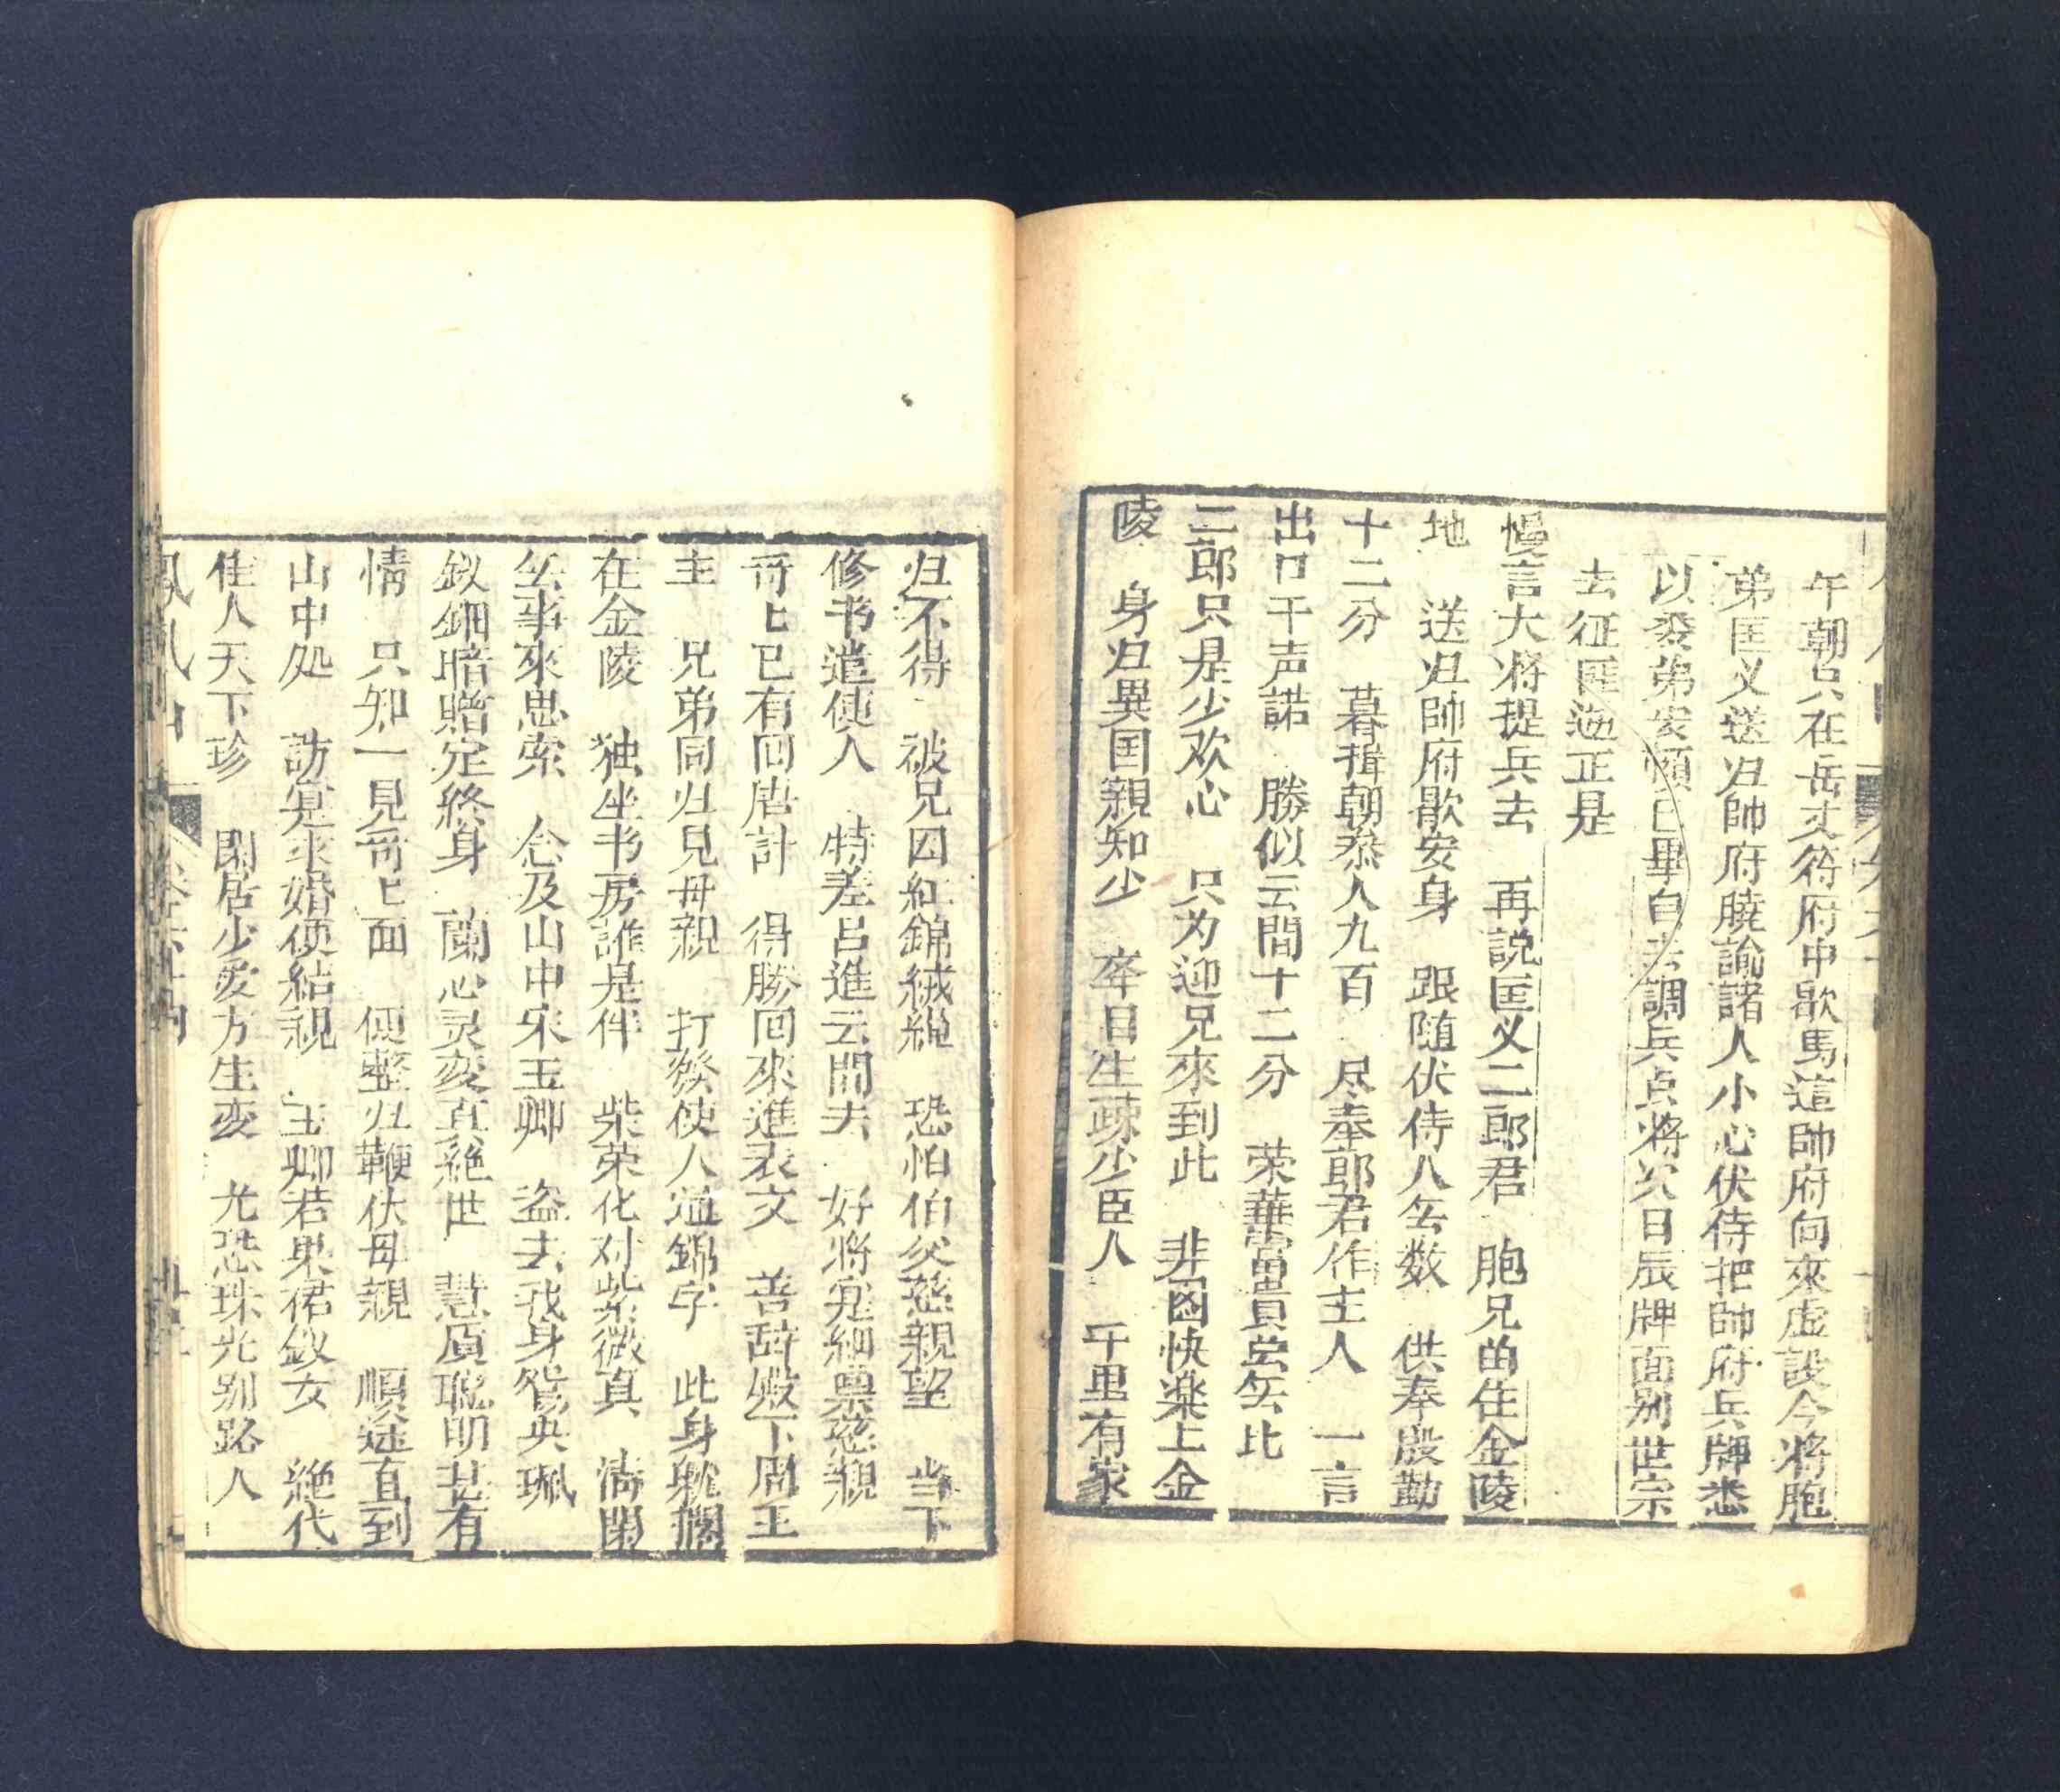 午朝只在岳丈符府中歇馬這帥府向來虛設今將胞
弟匡义送归帥府曉諭諸人小心伏侍把帥府兵牌悉
以委弟安頓已畢自去調兵点將次日辰牌面别世宗
去征匪遊正是
慢言大將提兵去 再説匡义二郎君 胞兄苗住金陵
地 送归帥府歇安身 跟隨伏侍人无数 供奉殷勤
十二分 暮揖朝叅人九百 尽奉郎君作主人 一言
出口千声諾 勝似云間十二分 荣華富貴尝无比
二郎只是少欢心 只为迎兄來到此 非图快楽上金
陵 身归異国親知少 卒目生疎少臣人 千里有家
归不得 被兄囚紅錦絨縄 恐怕伯父慈親望 当下
修书遣使人 特差吕進云間去 好將寃細禀慈親
哥匕已有回唐計 得勝回來進表文 善辞殿下周王
主 兄弟同归見毋親 打發使人通錦字 此身躭擱
在金陵 独坐书房誰是伴 柴荣化对紫微真 清閑
无事來思索 念及山中宋玉卿 盗去我身鴛央珮
釵鈿暗贈定終身 蘭心灵变真絶世 慧質聪明甚有
情 只知一見哥匕面 便整归鞭伏毋親 順途直到
山中処 訪寃求婚便結親 玉卿若果裙釵女 絶代
佳人天下珍 閑居少爱方生变 尤恐珠光别路人
鳳凰山